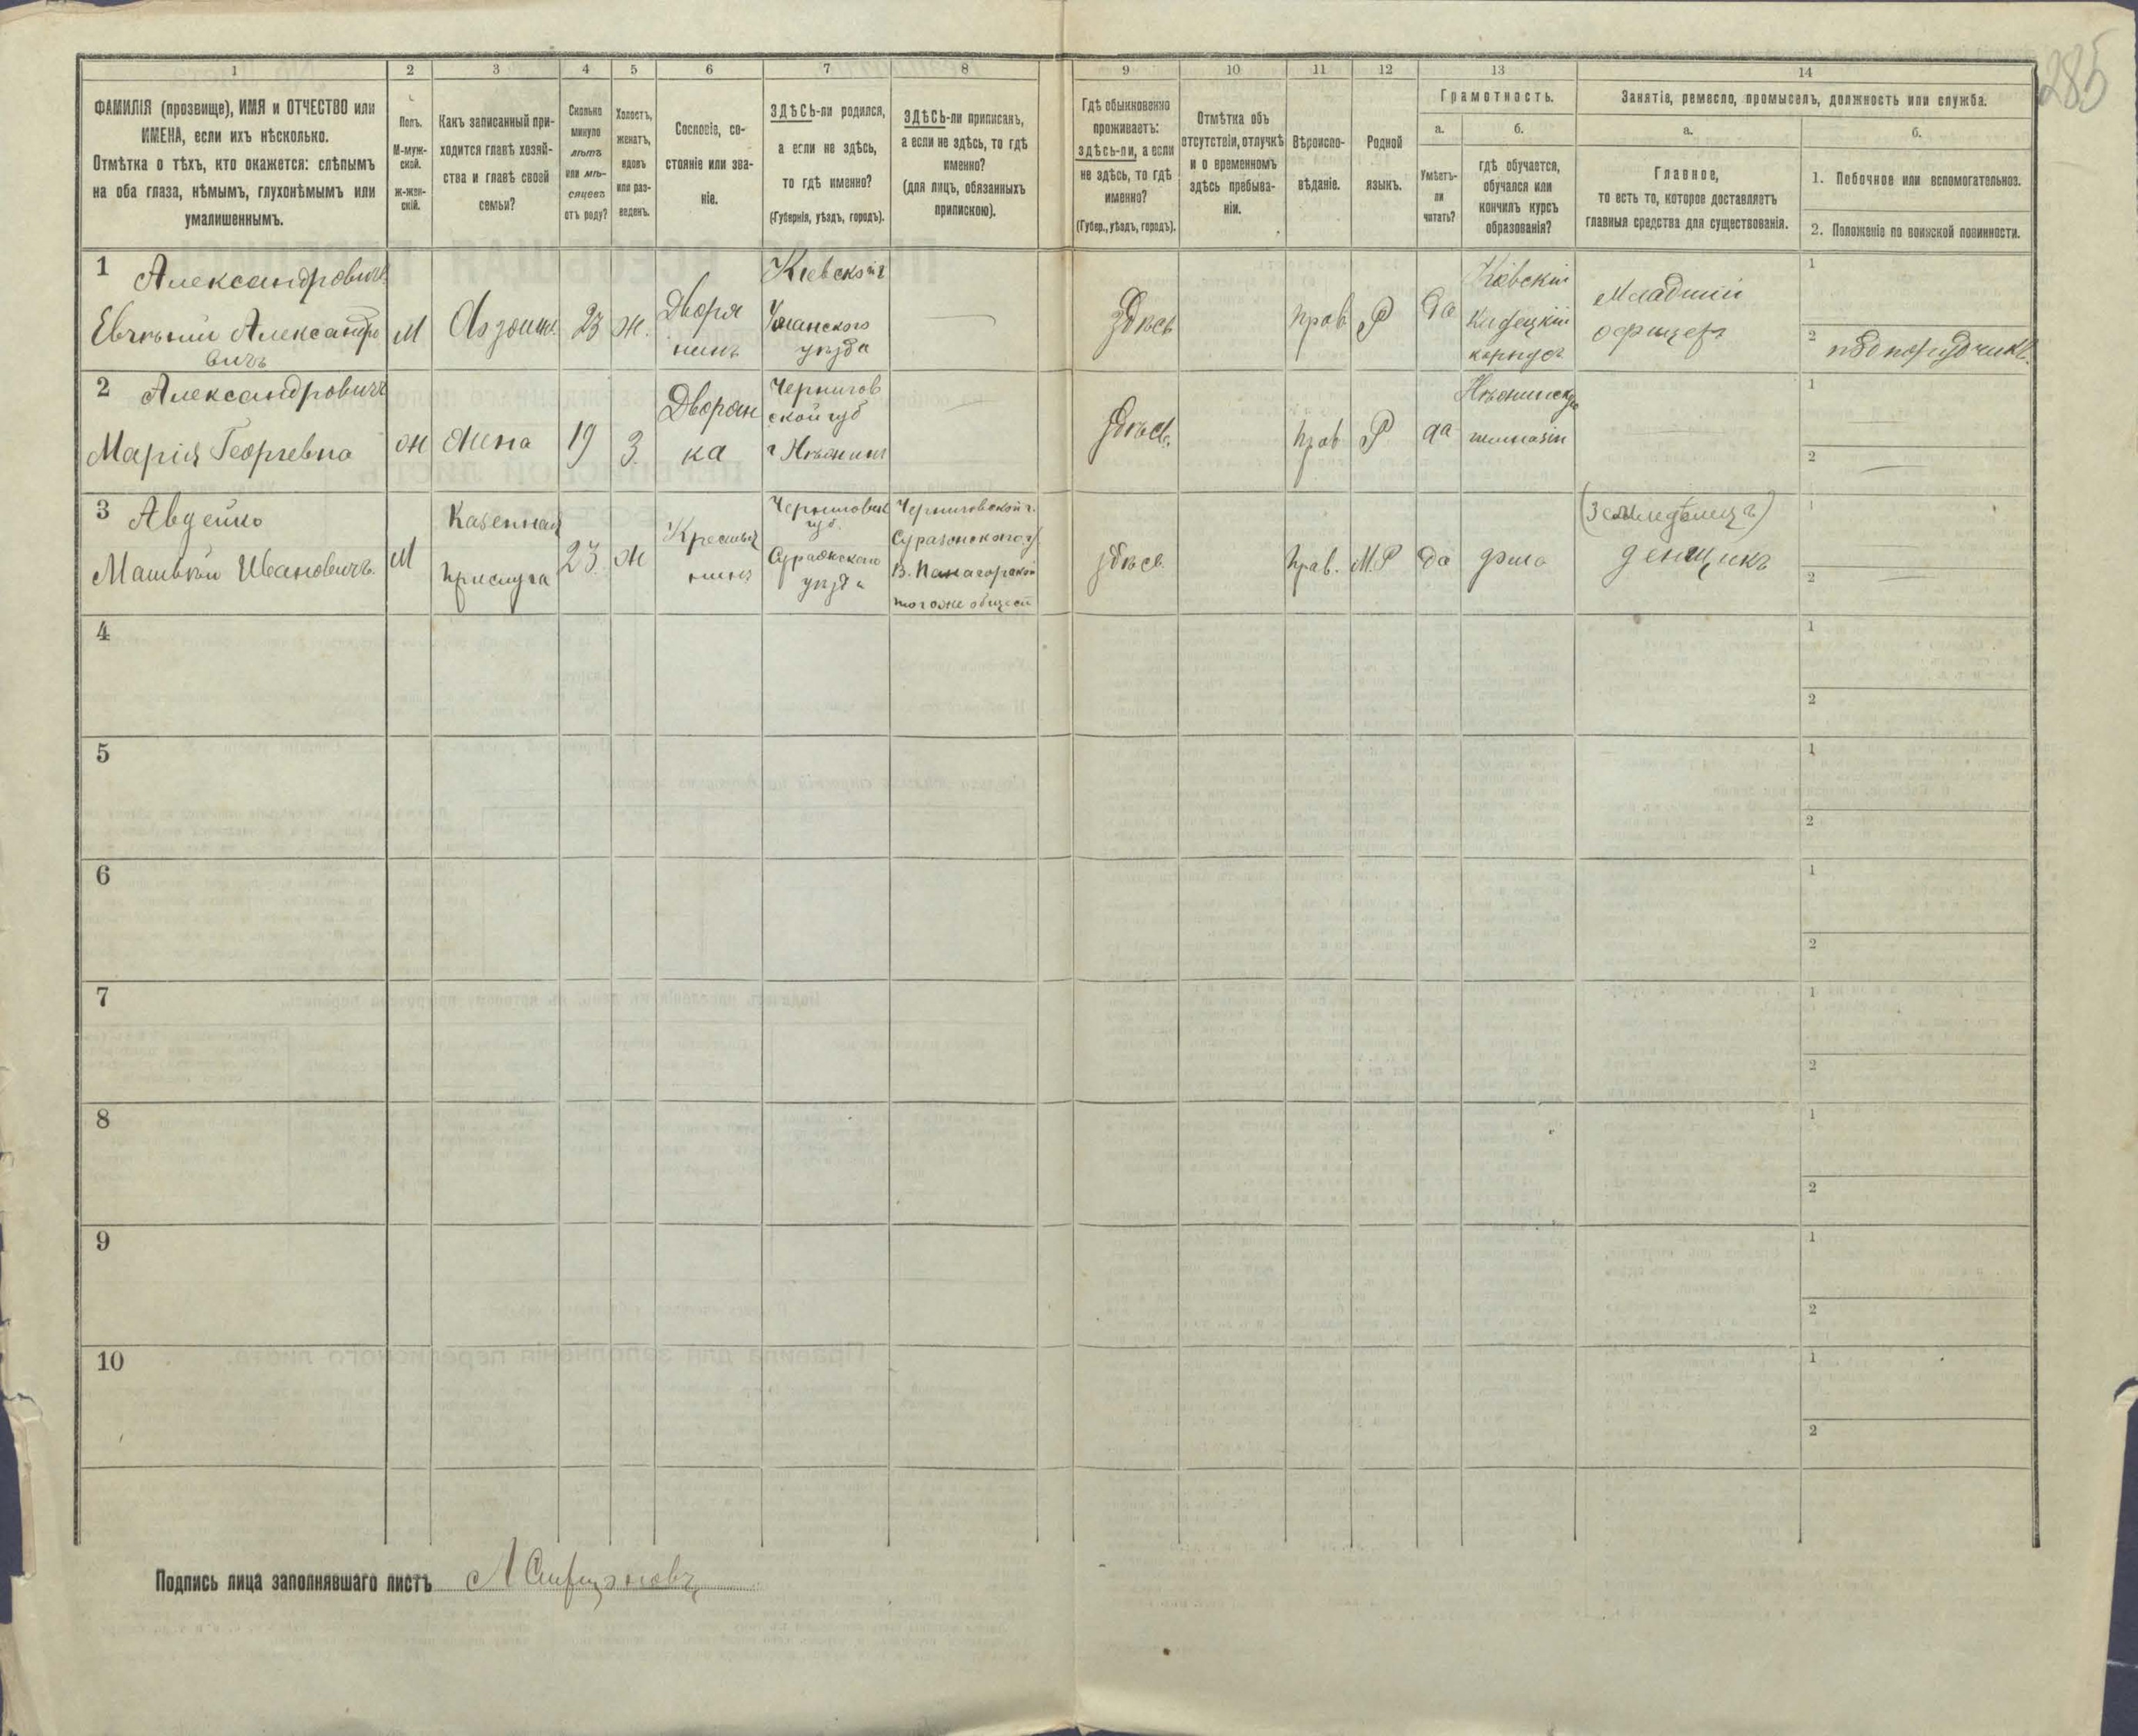 285
1
2
3
4
5
6
7
8
9
10
11
12
13
14
ФАМИЛІЯ (прозвище), ИМЯ и ОТЧЕСТВО или
ИМЕНА, если ихъ нѣсколько.
Отмѣтка о тѣхъ, кто окажется: слѣпымъ
на оба глаза, нѣмымъ, глухонѣмымъ или
умалишеннымъ.
Полъ.
М-муж-
ской.
Ж-жен-
скій.
Какъ записанный при-
ходится главѣ хозяй-
ства и главѣ своей
семьи?
Сколько
минуло
лѣтъ
или мѣ-
сяцевъ
отъ роду?
Холостъ,
женатъ,
вдовъ
или раз-
веденъ.
Сословіе, со-
стояніе или зва-
ніе.
ЗДѢСЬ-ли родился,
а если не здѣсь,
то гдѣ именно?
(Губернія, уѣздъ, городъ).
ЗДѢСЬ-ли приписанъ,
а если не здѣсь, то гдѣ
именно?
(для лицъ, обязанныхъ
припискою).
Гдѣ обыкновенно
проживаетъ:
здѣсь-ли, а если
не здѣсь, то гдѣ
именно?
(Губер., уѣздъ, городъ).
Отмѣтка объ
отсутствіи, отлучкѣ
и о временномъ
здѣсь пребыва-
ніи.
Вѣроиспо-
вѣданіе.
Родной
языкъ.
Грамотность.
а.
Умѣетъ-
ли
читать?
б.
гдѣ обучается,
обучался или
кончилъ курсъ
образованія?
Занятіе, ремесло, промыселъ, должность или служба.
а.
Главное,
то есть то, которое доставляетъ
главныя средства для существованія.
б.
1. Побочное или вспомогательное.
2. Положеніе по воинской повинности.
1
Александровичъ
Евгеній Александро
вичъ
М
23
ж.
Дворя
нинъ
Кіевской г
Уманского
уѣзда
здѣсь
прав
Р
да
Кіевскій
Кадецкій
корпусъ
Младшій
офицеръ
1
2
подпоручикъ.
2
Александровичъ
Марія Георгевна
ж
жена
19
З.
Дворян
ка
Чернигов
ской губ
г Нѣжинъ
здѣсь.
прав
Р
да
гимназіи
1
2
3
Авдейко
Матвѣй Ивановичъ.
М
Казенная
прислуга
23.
ж
Крестья
нинъ
губ.
Суражского
уѣзда
Черниговской г.
Суражского у
того же общест
здѣсь.
прав.
М.Р
да
дома
(Земледѣлецъ)
денщикъ
1
2
4
1
2
5
1
2
6
1
2
7
1
2
8
1
2
9
1
2
10
1
2
Подпись лица заполнявшаго листъ